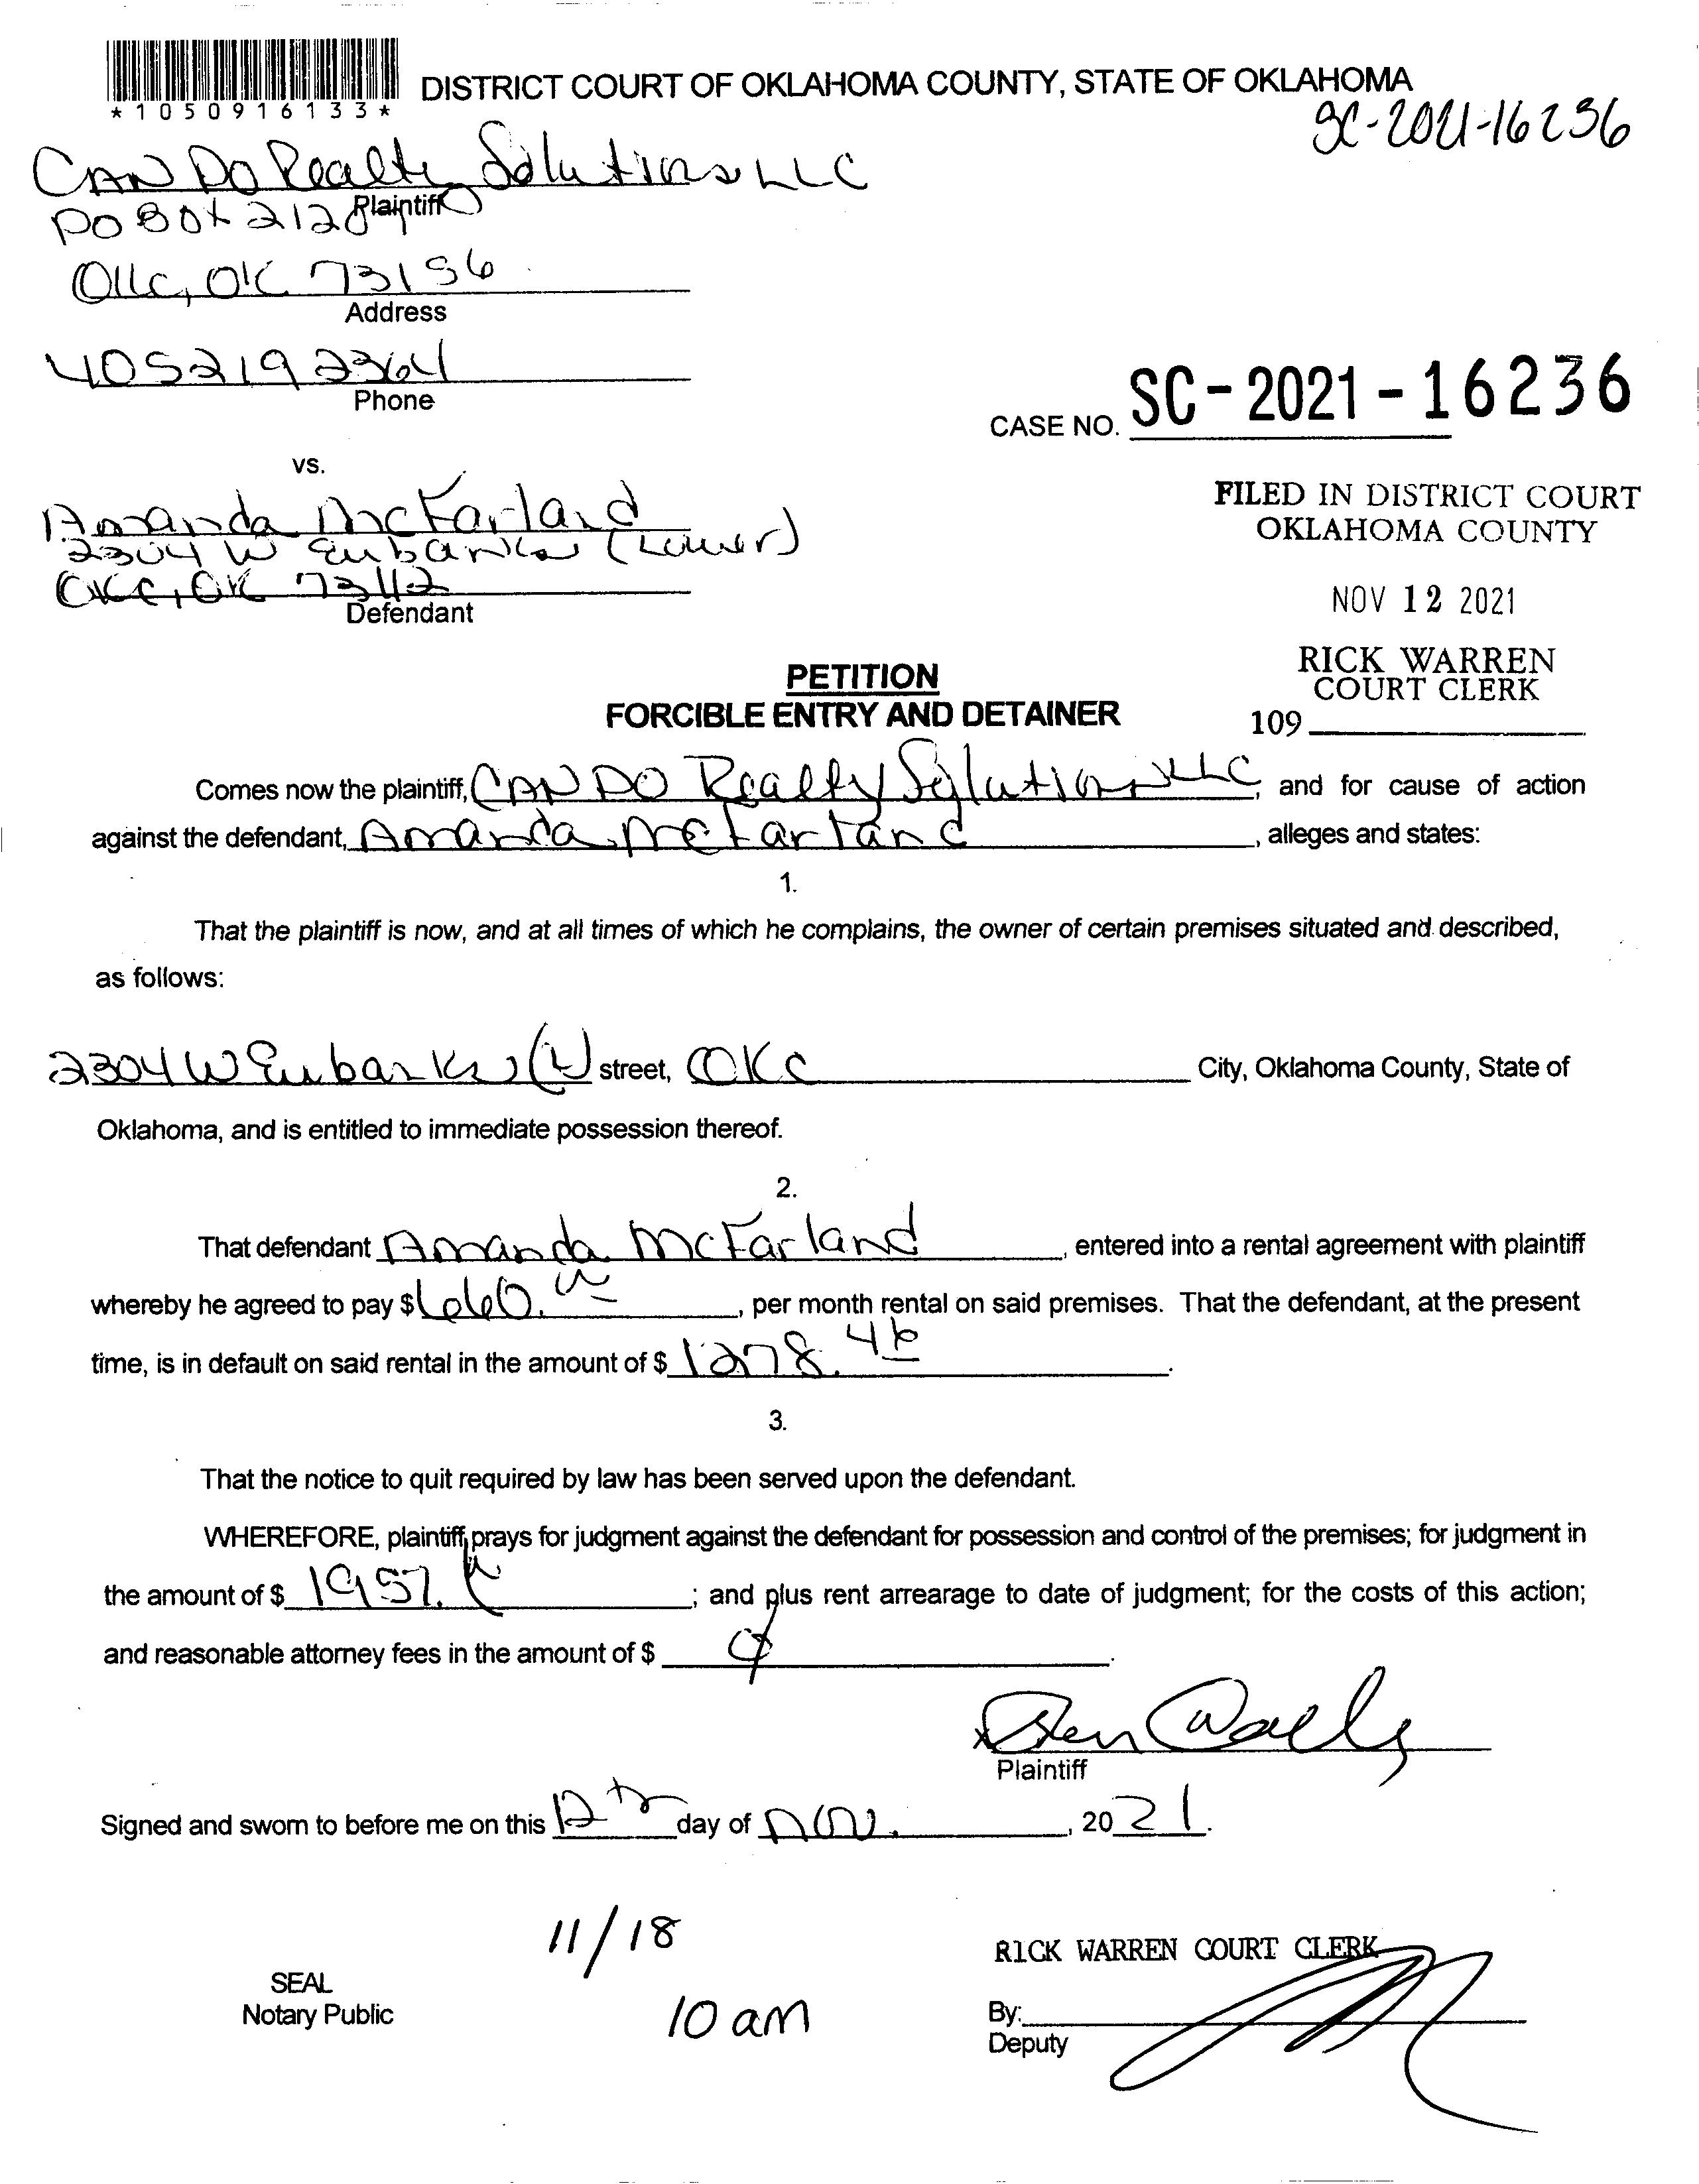 *1050916133*
DISTRICT COURT OF OKLAHOMA COUNTY, STATE OF OKLAHOMA
SC-2021-16236
CAN DO Realty Solutions LLC
Plaintiff
PO BOX 21284
OKC, OK 73156
Address
4052192364
Phone
CASE NO. SC-2021-16236
vs.
Amanda McFarland
2304 W Eubanks (Lower)
OKC, OK 73112
Defendant
FILED IN DISTRICT COURT
OKLAHOMA COUNTY
NOV 12 2021
RICK WARREN
COURT CLERK
109
PETITION
FORCIBLE ENTRY AND DETAINER
Comes now the plaintiff, CAN DO Realty Solutions LLC, and for cause of action
against the defendant, Amanda McFarland, alleges and states:
1.
That the plaintiff is now, and at all times of which he complains, the owner of certain premises situated and described,
as follows:
2304 W Eubanks (L) street, OKC City, Oklahoma County, State of
Oklahoma, and is entitled to immediate possession thereof.
2.
That defendant Amanda McFarland, entered into a rental agreement with plaintiff
whereby he agreed to pay $660., per month rental on said premises. That the defendant, at the present
time, is in default on said rental in the amount of $1278.46.
3.
That the notice to quit required by law has been served upon the defendant.
WHEREFORE, plaintiff, prays for judgment against the defendant for possession and control of the premises; for judgment in
the amount of $1957.; and plus rent arrearage to date of judgment; for the costs of this action;
and reasonable attorney fees in the amount of $
Plaintiff
Signed and sworn to before me on this 12th day of Nov., 2021.
11/18
10 am
SEAL
Notary Public
RICK WARREN COURT CLERK
By:
Deputy